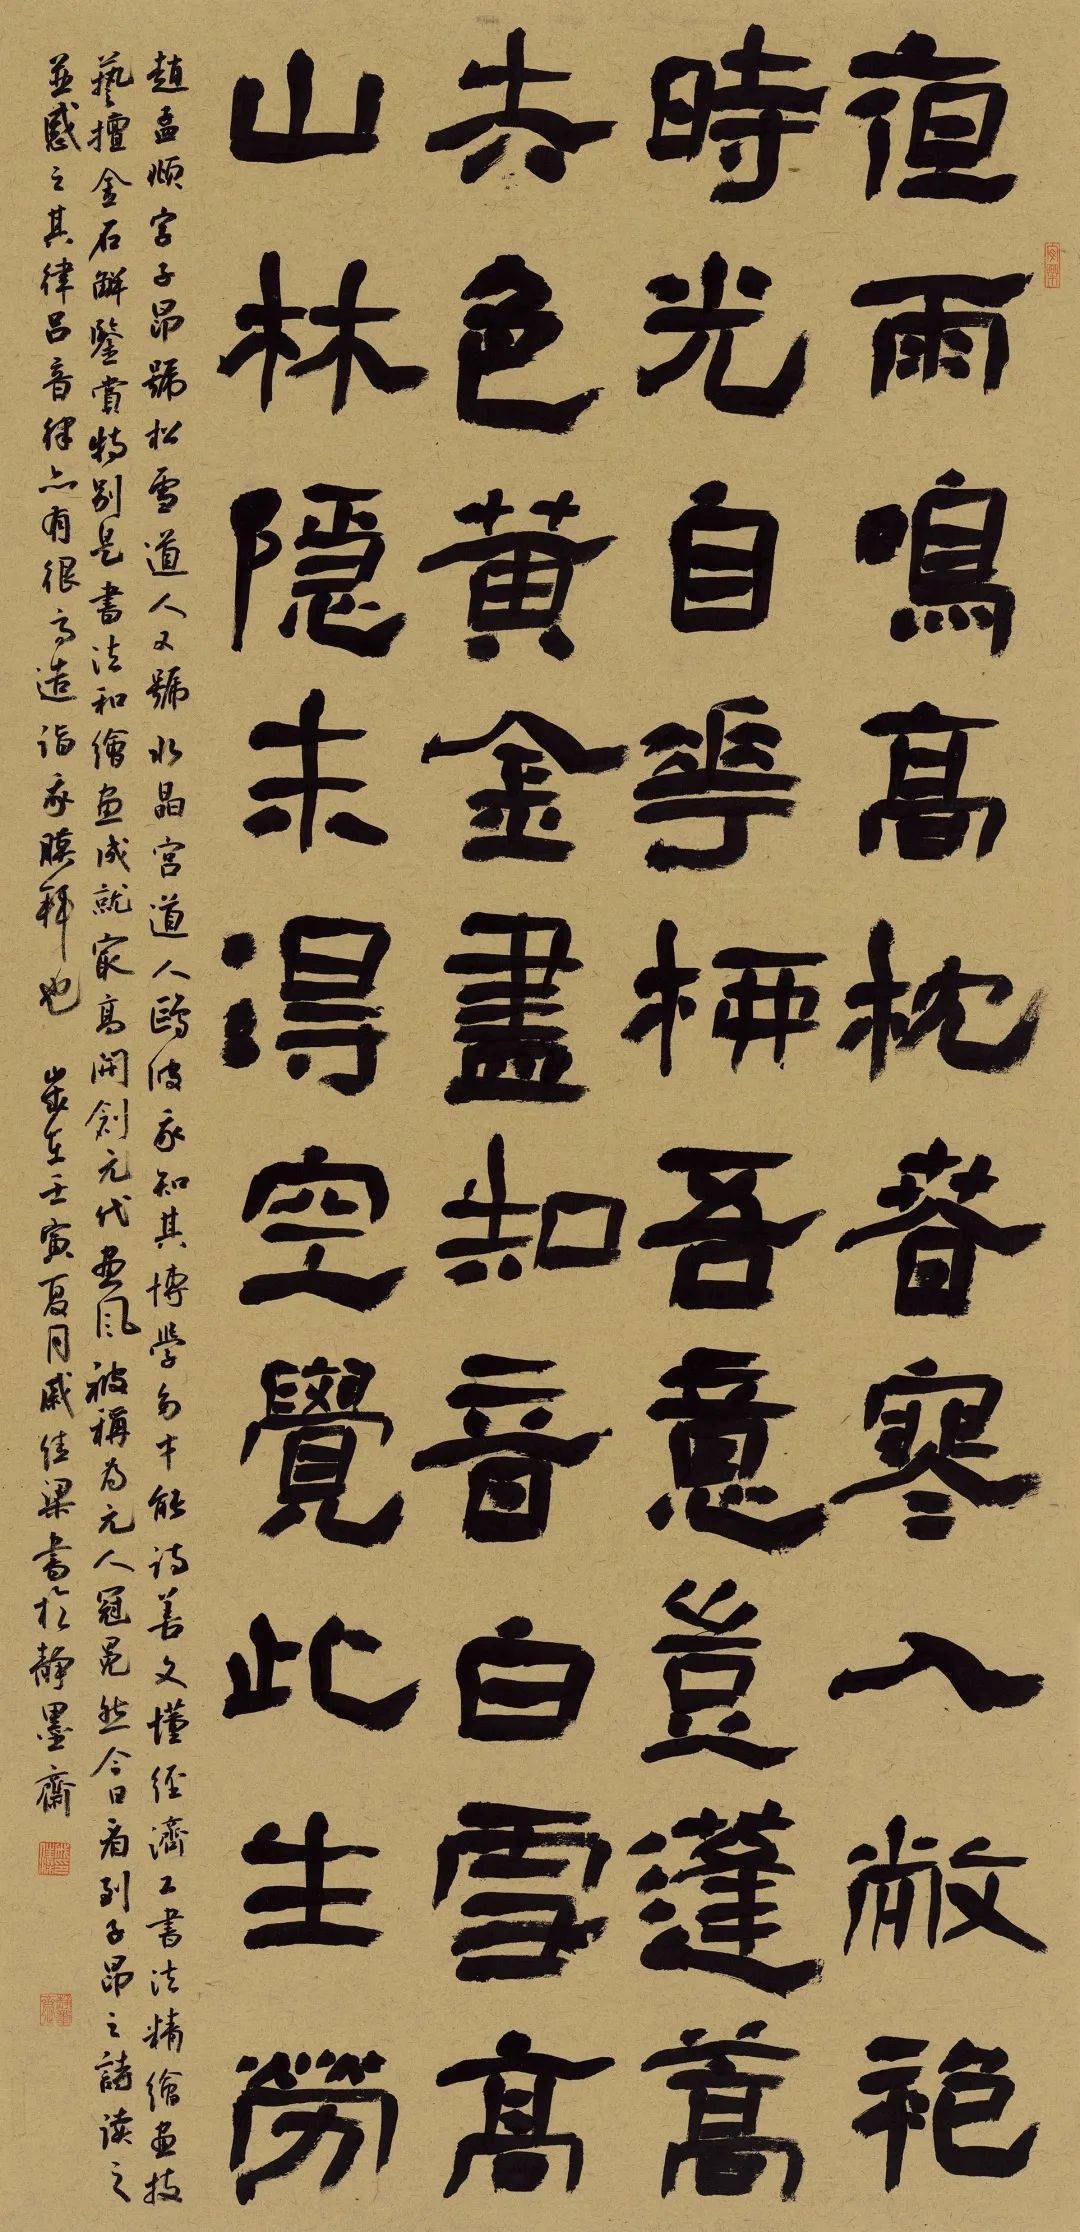 夜雨鳴高枕春寒入敝袍
時光自華桺吾意豈蓬蒿
失色黄金盡知音白雪高
山林隱未得空覺此生勞
趙孟頫字子昂號松雪道人又號水晶宮道人鷗波我知其博學多才能詩善文懂經濟工書法精繪畫技
藝擅金石解鑒賞特別是書法和繪畫成就最高開創元代畫風被稱為元人冠冕然今日看到子昂之詩讀之
並感之其律呂音律亦有很高造詣我膜拜也 歲在壬寅夏月戚佳梁書於靜墨齋